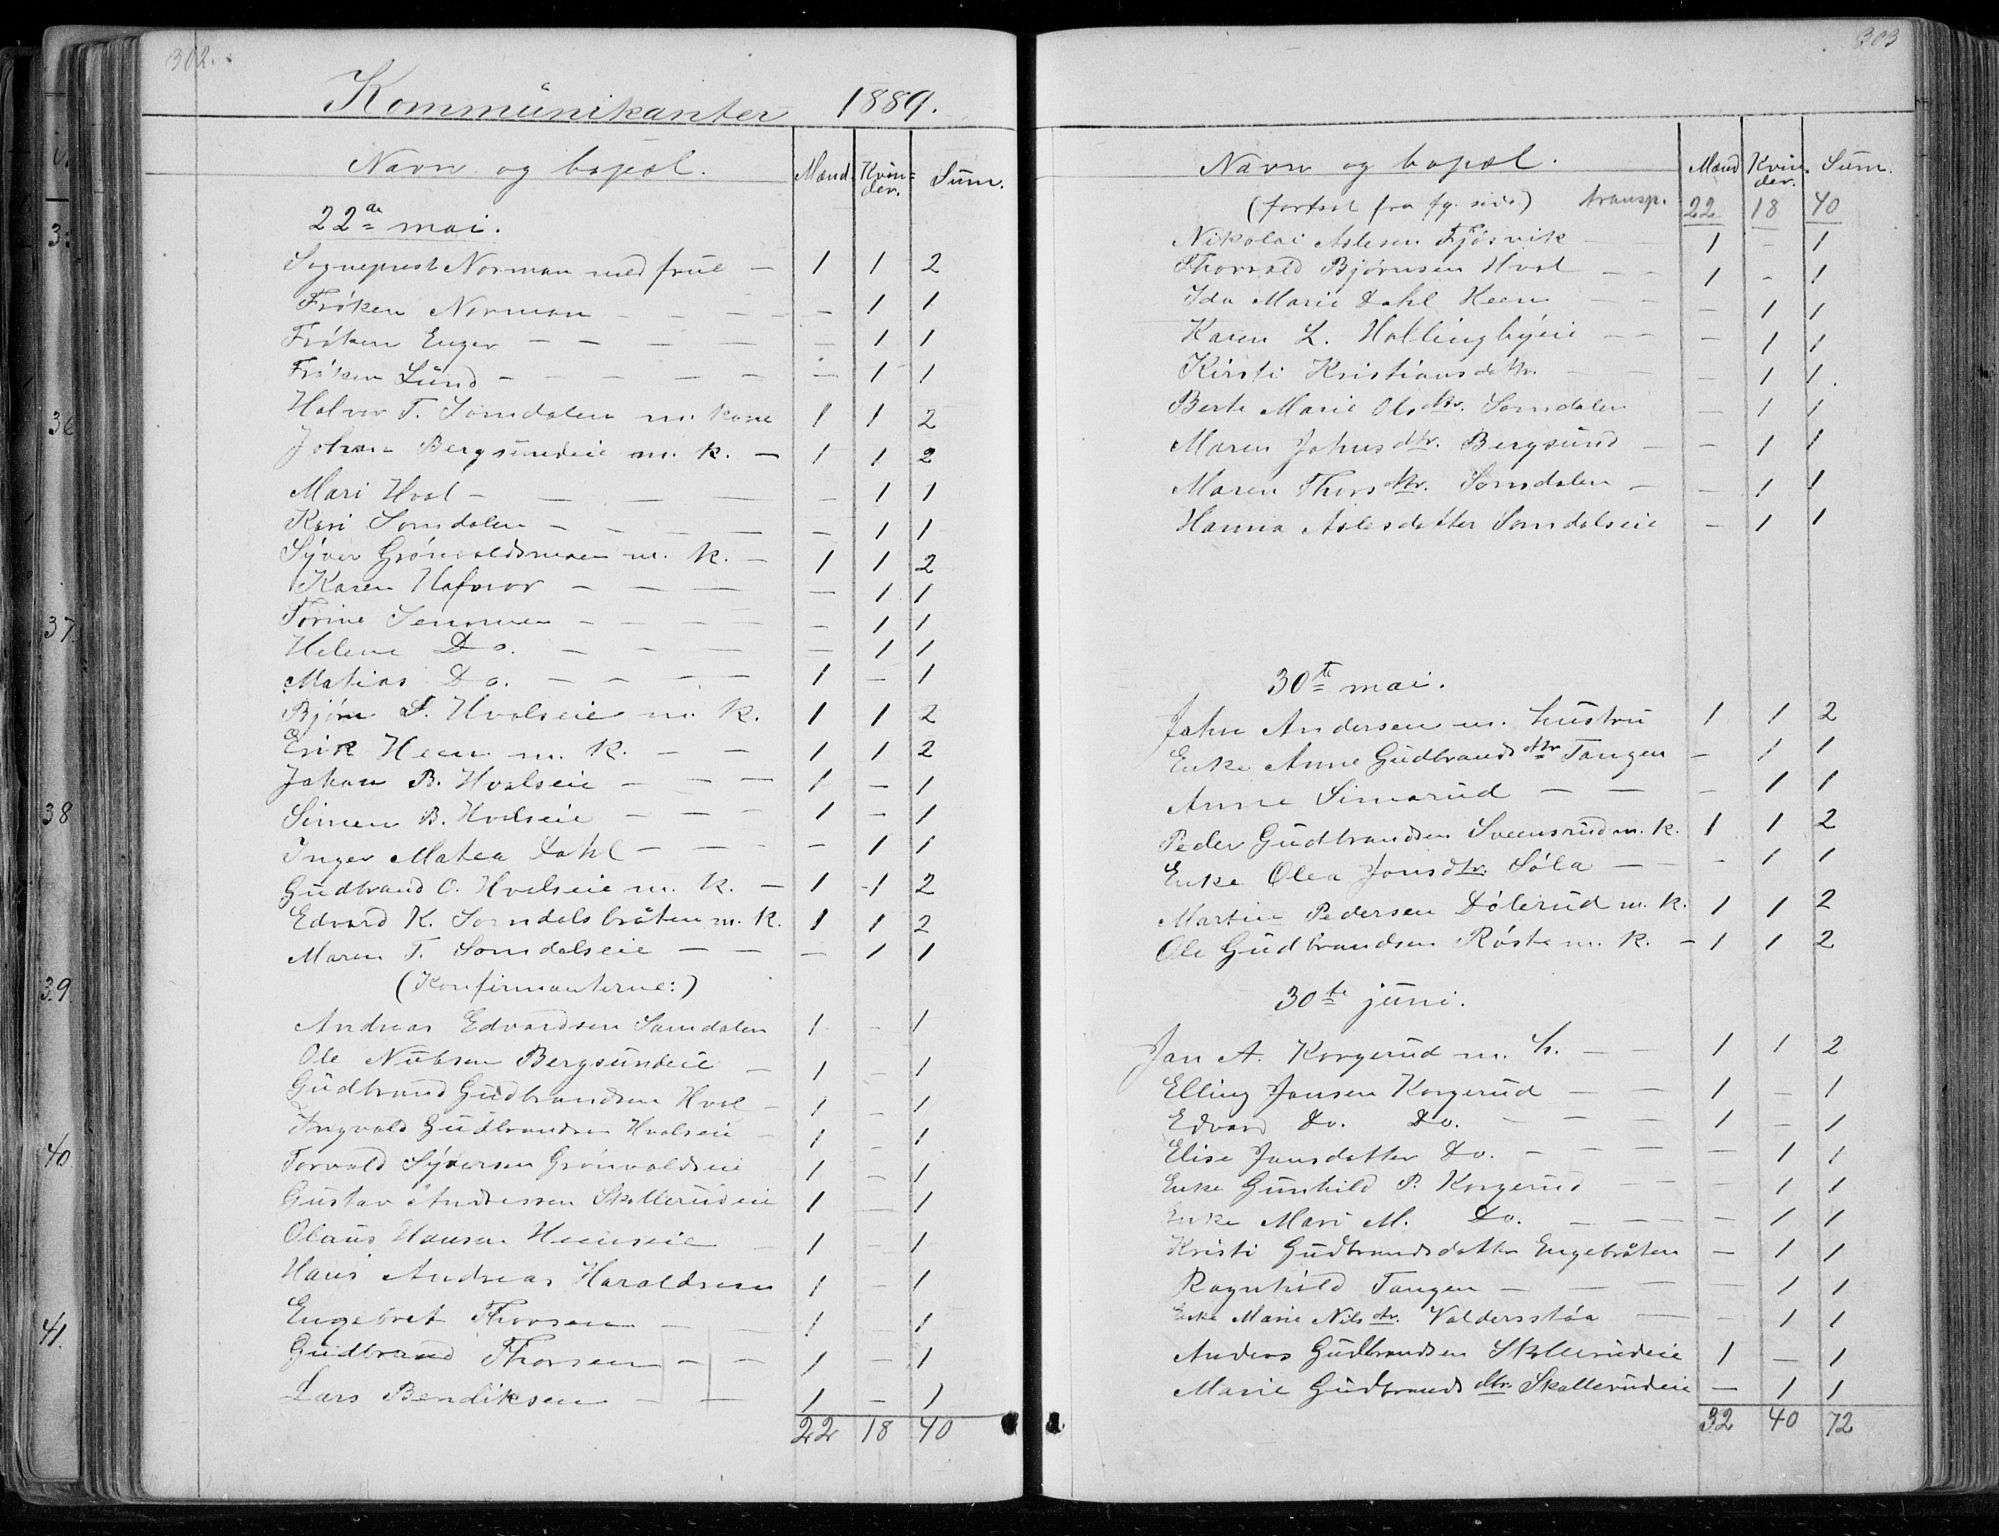 302.
Kommünikanter 1889.
Navn og bopæl. Mænd. Kvin= der. Süm.
22de mai.
Sogneprest Norman med früe — 1 1 2
Frøken Norman — — — — — 1 1
Frøken Enger — — — — — 1 1
Frøken Lünd — — — — — — 1 1
Halvor T. Somdalen m. kone 1 1 2
Johan Bergsundeie m. k. — 1 1 2
Mari Hval — — — — — 1 1
Kari Somdalen — — — — — 1 1
Syver Grönvoldsmoen m. k. — 1 1 2
Karen Hafnor — — — — 1 1
Torine — — — — — 1 1
Helene Do. — — — — 1 1
Matias Do. — — — — 1 — 1
Bjørn S. Hvalseie m. k. 1 1 2
Erik Heen m. k. — — 1 1 2
Johan B. Hvalseie — — — 1 — 1
Simen B. Hvalseie — — — 1 — 1
Inger Matea Dahl — — — — 1 1
Güdbrand O. Hvalseie m. k. — 1 1 2
Edvard K. Somdalsbråten m. k. 1 1 2
Maren T. Somdalseie — — — 1 1
(Konfirmanterne:)
Andreas Edvardsen Somdalen 1 — 1
Ole Bergsündeie — 1 — 1
Güdbrand Güdbrandsen Hval — 1 — 1
Ingvald Güdbrandsen Hvalseie — 1 — 1
Torvald Syversen Grönvoldseie 1 — 1
Gustav Andersen Skollerudeie 1 — 1
Olaus Hansen Heenseie — 1 — 1
Hans Andreas Haraldsen 1 — 1
Engebret Thorsen — — 1 — 1
Güdbrand Thorsen — — 1 — 1
Lars Bendiksen — — 1 — 1
22 18 40
303
Navn og bopæl. Mænd Kvin der. Süm.
(fortsat fra fg. side) transp. 22 18 40
Nikolai Aslesen Fjøsvik — 1 — 1
Thorvald Bjørnsen Hval — — 1 — 1
Ida Marie Dahl Heen — — — 1 1
Karen L. Hollingbyeie — — — 1 1
Kirsti Kristiansdtr. — — — 1 1.
Berte Marie Olsdtr. Somdalen — 1 1
Maren Johnsdtr. Bergsünd — — 1 1
Maren Thorsdtr. Somdalen — — 1 1
Hanna Aslesdatter Somdalseie — 1 1
30te mai.
John Andersen m. hüstru 1 1 2
Enke Anne Güdbrandsdtr Tangen — 1 1
Anne Simarud — — — 1 1
Peder Güdbrandsen Sveensrud m. k. 1 1 2
Enke Olea Jonsdtr. Søla — — — 1 1
Martin Pedersen Dølerud m. k. 1 1 2
Ole Güdbrandsen Røste m. k. — 1 1 2
30te jüni.
Jan A. Korgerud m. h. — — 1 1 2
Elling Jansen Korgerüd — — 1 — 1
Edvard Do. Do. — — — 1 — 1
Elise Jansdatter Do. — — — — 1 1
Enke Gunhild P. Korgerud — — — 1 1
Enke Mari M. Do. — — — — 1 1
Kristi Güdbrandsdatter Engebråten — 1 1
Ragnhild Tangen — — — — 1 1
Enke Marie Nilsdtr. Valdersstøa — — 1 1
Anders Güdbrandsen Skollerudeie 1 — 1
Marie Güdbrandsdtr. Skollerudeie — 1 1
32 40 72
35
36
37.
38
39.
40.
41.